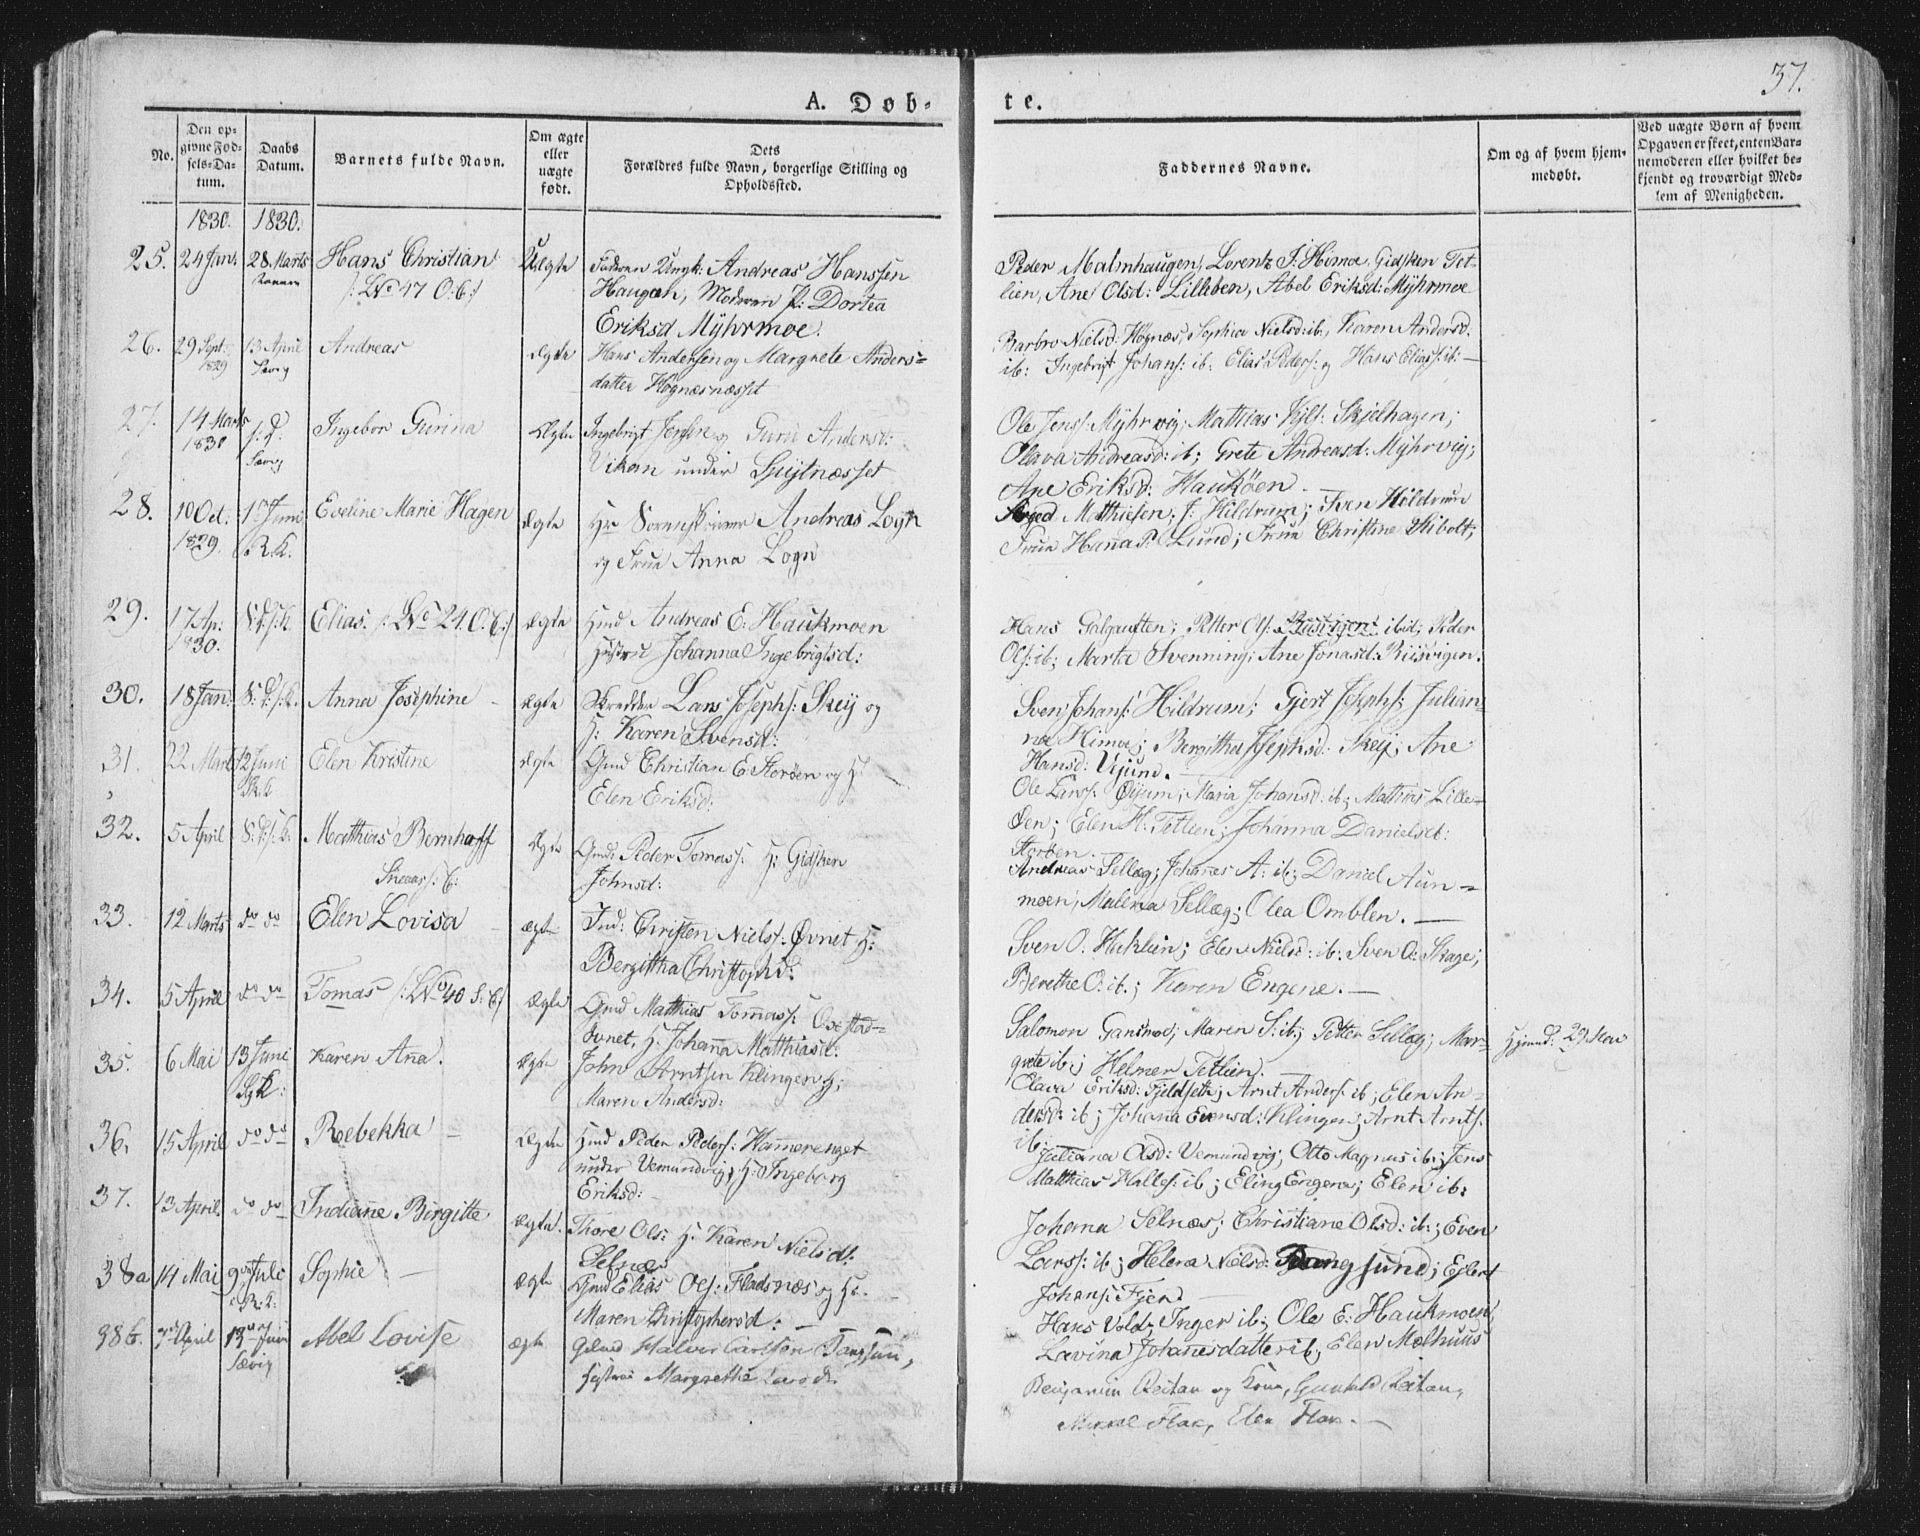 37.
A. Døb-
te.
No.
Den op-
givne Fød-
sels-Da-
tum.
Daabs
Datum.
Barnets fulde Navn.
Om ægte
eller
uægte
født.
Dets
Forældres fulde Navn, borgerlige Stilling og
Opholdsted.
Faddernes Navne.
Om og af hvem hjem-
medøbt.
Ved uægte Børn af hvem
Opgaven er skeet, enten Bar-
nemoderen eller hvilket be-
kjendt og troværdigt Med-
lem af Menigheden.
1830. 1830.
25. 24 Jan. 28 Marts Hans Christian Uægte Faderen Ungk: Andreas Hanssen
/: No 47 O: C:/ Haugan, Moderen P: Dortea
Eriksd Mÿhrmoe.
Peder Malmhaugen, Lorentz J: Himoe, Gidsken Tet-
lien, Ane Olsd: Lilleøen, Abel Eriksd: Mÿhrmoe
26. 29 Sept. 13 April Andreas ægte Hans Andersen og Margrete Anders-
1829 Sævig
datter Høgnesnæsset
Barbro Nielsd: Høgnæs, Sophia Nielsd: ib, Karen Andersd.
ib: Ingebrigt Johans: ib: Elias Peders: og Hans Elias: ib: —
27. 14 Marts s: D: Ingebor Gurina Ægte Ingebrigt og Guru Andersd:
1830 Sævig
Vikan under Spiytnæsset
Ole Jens: Mÿhrvig; Mathias Kjelt: Skjelhagen;
Olava Andreasd: ib; Grete Andreasd: Mÿhrvig;
Ane Eriksd: Haukøen. —
28. 10 Oct. 1 Juni Eveline Marie Hagen ægte Hr Sorenskriver Andreas Logn
1829. R. K.
og Frue Anna Logn
Matthiesen; J: Hildrum; Sven Hildrum
Frue Hanna P: Lund; Frue Christine Hibolt;
29. 17 Ap. Elias. /: No 24. O. C:/ ægte Hmd Andreas E: Haukmoen
1830.
Hustrue Johanna Ingebrigtsd:
Hans Galgauften; Petter Ols: ibid; Peder
Ols: ib; Marta Svenning; Ane Jonasd: Riisvigen.
30. 18 Jan: S: D: s: K. Anna Josephine - ægte Skredder Lars Joseph: Skeij og
H: Karen Svensd:
Sven Johans: Hildrum; Gjert Joseph: Julian-
na Himo; Bergitha Josephsd: Skeij; Ane
Hansd: Vejund. —
31. 22 Marts 12 Juni Elen Kristine ægte Gmd Christian E Storøen og H:
R. K
Elen Eriksd:
Ole Lars: Øijum; Maria Johansd: ib; Mathias Lille-
Øen; Elen H: Tetlien; Johanna Danielsd:
Storøen.
32. 5 April S: D: s: K. Matthias Bernhoff Ægte Gmd: Peder Tomas: H: Gidsken
Johnsd:
Andreas Sellæg; Johanes A: ib; Daniel Aun-
moen; Malena Sellæg; Olea Omblen. —
33. 12 Marts do do Elen Lovisa ægte Ind: Christen Niels: Øvnet H:
Bergittha Christophd:
Sven O. Heklein; Elen Nielsd: ib: Sven O: Skage;
Berethe O: ib.; Karen Engene. —
34. 5 April do do Tomas /: No 40 S: C:/ Ægte Gmd Matthias Tommas:
Øvnet, H: Johanna Matthiasd:
Salomon Gansmoe; Maren S: ib; Petter Sellæg; Mar-
grete ib; Helmer Tetlien. —
35. 6 Mai 13 Juni Karen Ana. Ægte John Arntsen Klingen H;
Maren Andersd:
Olava Eriksd: Fjeldseth; Arnt Anders: ib; Elen An-
dersd: ib; Johana Evensd: Klingen; Arnt Arnts:
ib.
36. 15 April do do Rebekka - Ægte Hmd Peder Peders: Hamerenget
under Vemundvig, H: Ingeborg
Eriksd: -
Juliana Olsd: Vemundvig; Otto Magnus ib; Jens
Matthias Halles: ib; Eling Engene; Elen ib:
37. 13 April. do do Indiane Birgitte ægte Thore Ols: H: Karen Nielsd:
Selnæs
Johana Selnæs; Christiane Olsd: ib:; Even
Larss: ib; Helena Nielsd: sund; Ejlert
Johans: Fjerd —
38a 14 Mai 9 Juli Sophie - ægte Gmd Elias Ols: Fladsnæs og H:
R: K:
Maren Christophersd: —
Hans Vold; Inger ib; Ole E: Haukmoen,
Lavina Johannesdatter ib; Elen Melhuus
38b. April 13 Juni Abel Lovise ægte Halver Carlssen
Sævig
Hustrue Margrethe
Benjamin Reitan og Kone, Gunhild Reitan,
Mikkel Flak, Elen Flak. —